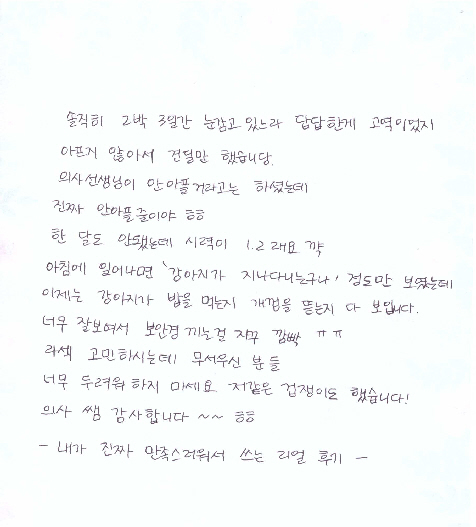 솔직히 2박 3일간 눈감고 있느라 답답한게 고역이었지
아프지 않아서 견딜만 했습니당.
의사선생님이 안아플거라고는 하셨는데
진짜 안아플줄이야 ㅎㅎ
한 달도 안됐는데 시력이 1.2 래요 꺅
아침에 일어나면 '강아지가 지나다니는구나' 정도만 보였는데
이제는 강아지가 밥을 먹는지 개껌을 뜯는지 다 보입니다.
너무 잘보여서 보안경 끼는걸 자꾸 깜빡 ㅠㅠ
라섹 고민하시는데 무서우신 분들
너무 두려워 하지 마세요 저같은 겁쟁이도 했습니다!
의사 쌤 감사합니다 ~~ ㅎㅎ
- 내가 진짜 만족스러워서 쓰는 리얼 후기 -